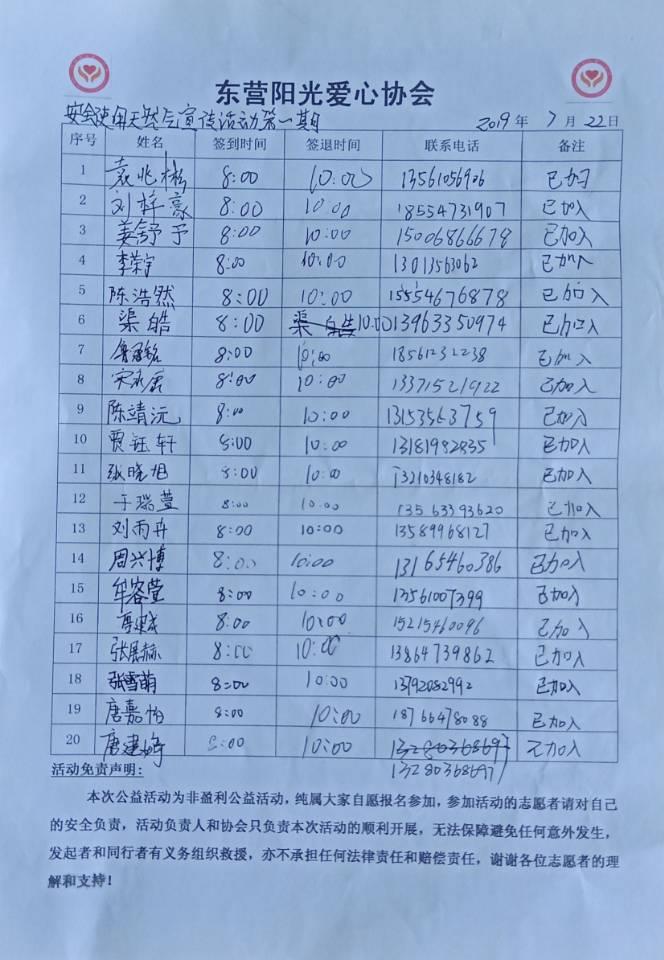 东营阳光爱心协会
安全使用天然气宣传活动第一期
2019 年 7 月 22 日
序号 姓名 签到时间 签退时间 联系电话 备注
1 袁兆彬 8:00 10:00 13561056926 已加入
2 刘梓豪 8:00 10:00 18554731907 已加入
3 姜舒予 8:00 10:00 15006866678 已加入
4 李荣宇 8:00 10:00 13013563062 已加入
5 陈浩然 8:00 10:00 15554676878 已加入
6 渠皓 8:00 10:00 13963350974 已加入
7 8:00 10:00 18561232238 已加入
8 8:00 10:00 13371521922 已加入
9 陈靖沅 8:00 10:00 13153563759 已加入
10 贾钰轩 8:00 10:00 13181982835 已加入
11 张晓旭 8:00 10:00 13210348182 已加入
12 于瑞萱 8:00 10:00 13563393620 已加入
13 刘雨冉 8:00 10:00 13589968127 已加入
14 周兴博 8:00 10:00 13165460386 已加入
15 牟容萱 8:00 10:00 13561007399 已加入
16 8:00 10:00 15215460096 已加入
17 8:00 10:00 13864739862 已加入
18 张雪萌 8:00 10:00 13792082992 已加入
19 唐嘉怡 8:00 10:00 18766478088 已加入
20 唐建婷 8:00 10:00 13280368697 已加入
13280368697
活动免责声明：
本次公益活动为非盈利公益活动，纯属大家自愿报名参加，参加活动的志愿者请对自己
的安全负责，活动负责人和协会只负责本次活动的顺利开展，无法保障避免任何意外发生，
发起者和同行者有义务组织救援，亦不承担任何法律责任和赔偿责任，谢谢各位志愿者的理
解和支持！